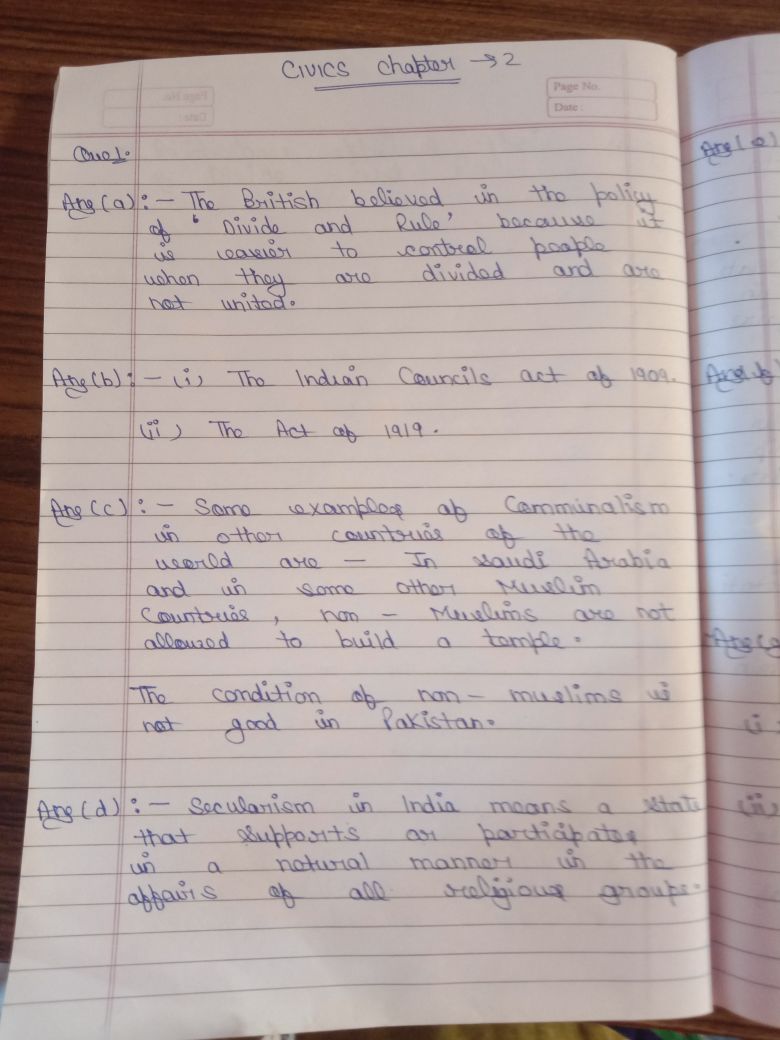 CIVICS Chapter → 2
Page No.
Date :
Que 1.
Ans (a) : - The British believed in the policy
of ' Divide and Rule' because it
is easier to control people
when they are divided and are
not united.
Ans (b) : - (i) The Indian Councils act of 1909.
(ii) The Act of 1919.
Ans (c) : - Some examples of Cemminalism
in other countries of the
world are - In saudi Arabia
and in some other Muslim
Countries, non - Muslims are not
allowed to build a temple.
The condition of non - muslims is
not good in Pakistan.
Ans (d) : - Secularism in India means a state
that supports or participates
in a natural manner in the
affairs of all religious groups.
Ans (e)
Ans (g
(i
(ii